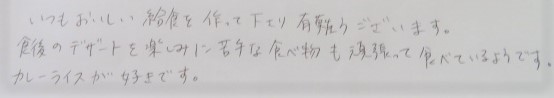 いつもおいしい給食を作って下さり有難うございます。
食後のデザートを楽しみに苦手な食べ物も頑張って食べているようです。
カレーライスが好きです。